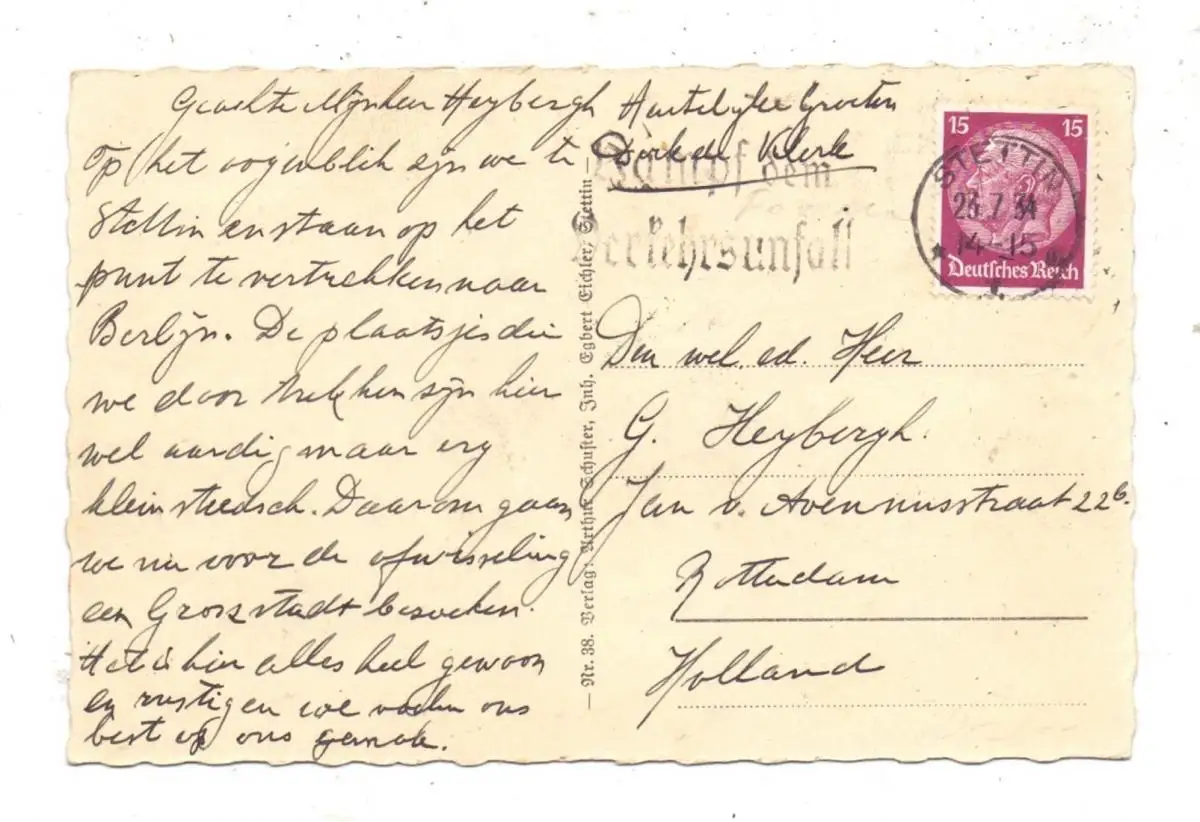 Geachte Mijnheer Heybergh
Op het oogenblik zijn we te
Stettin en staan op het
punt te vertrekken naar
Berlijn. De plaatsjes die
we door trekken zijn hier
wel aardig maar erg
kleinsteedsch. Daarom gaan
we nu voor de afwisseling
een Grosstadt bezoeken.
Het is hier alles heel gewoon
en rustig en we voelen ons
best op ons gemak.
Hartelijke Groeten
Dork de Klerk
Kampf dem
Verkehrsunfall
15 15
STETTIN
23.7.34
14-15
Deutsches Reich
Nr. 38. Verlag: Arthur Schuster, Inh. Egbert Eichler, Stettin
Den wel. ed. Heer
G. Heybergh.
Jan v. Avennusstraat 22b.
Rotterdam
Holland